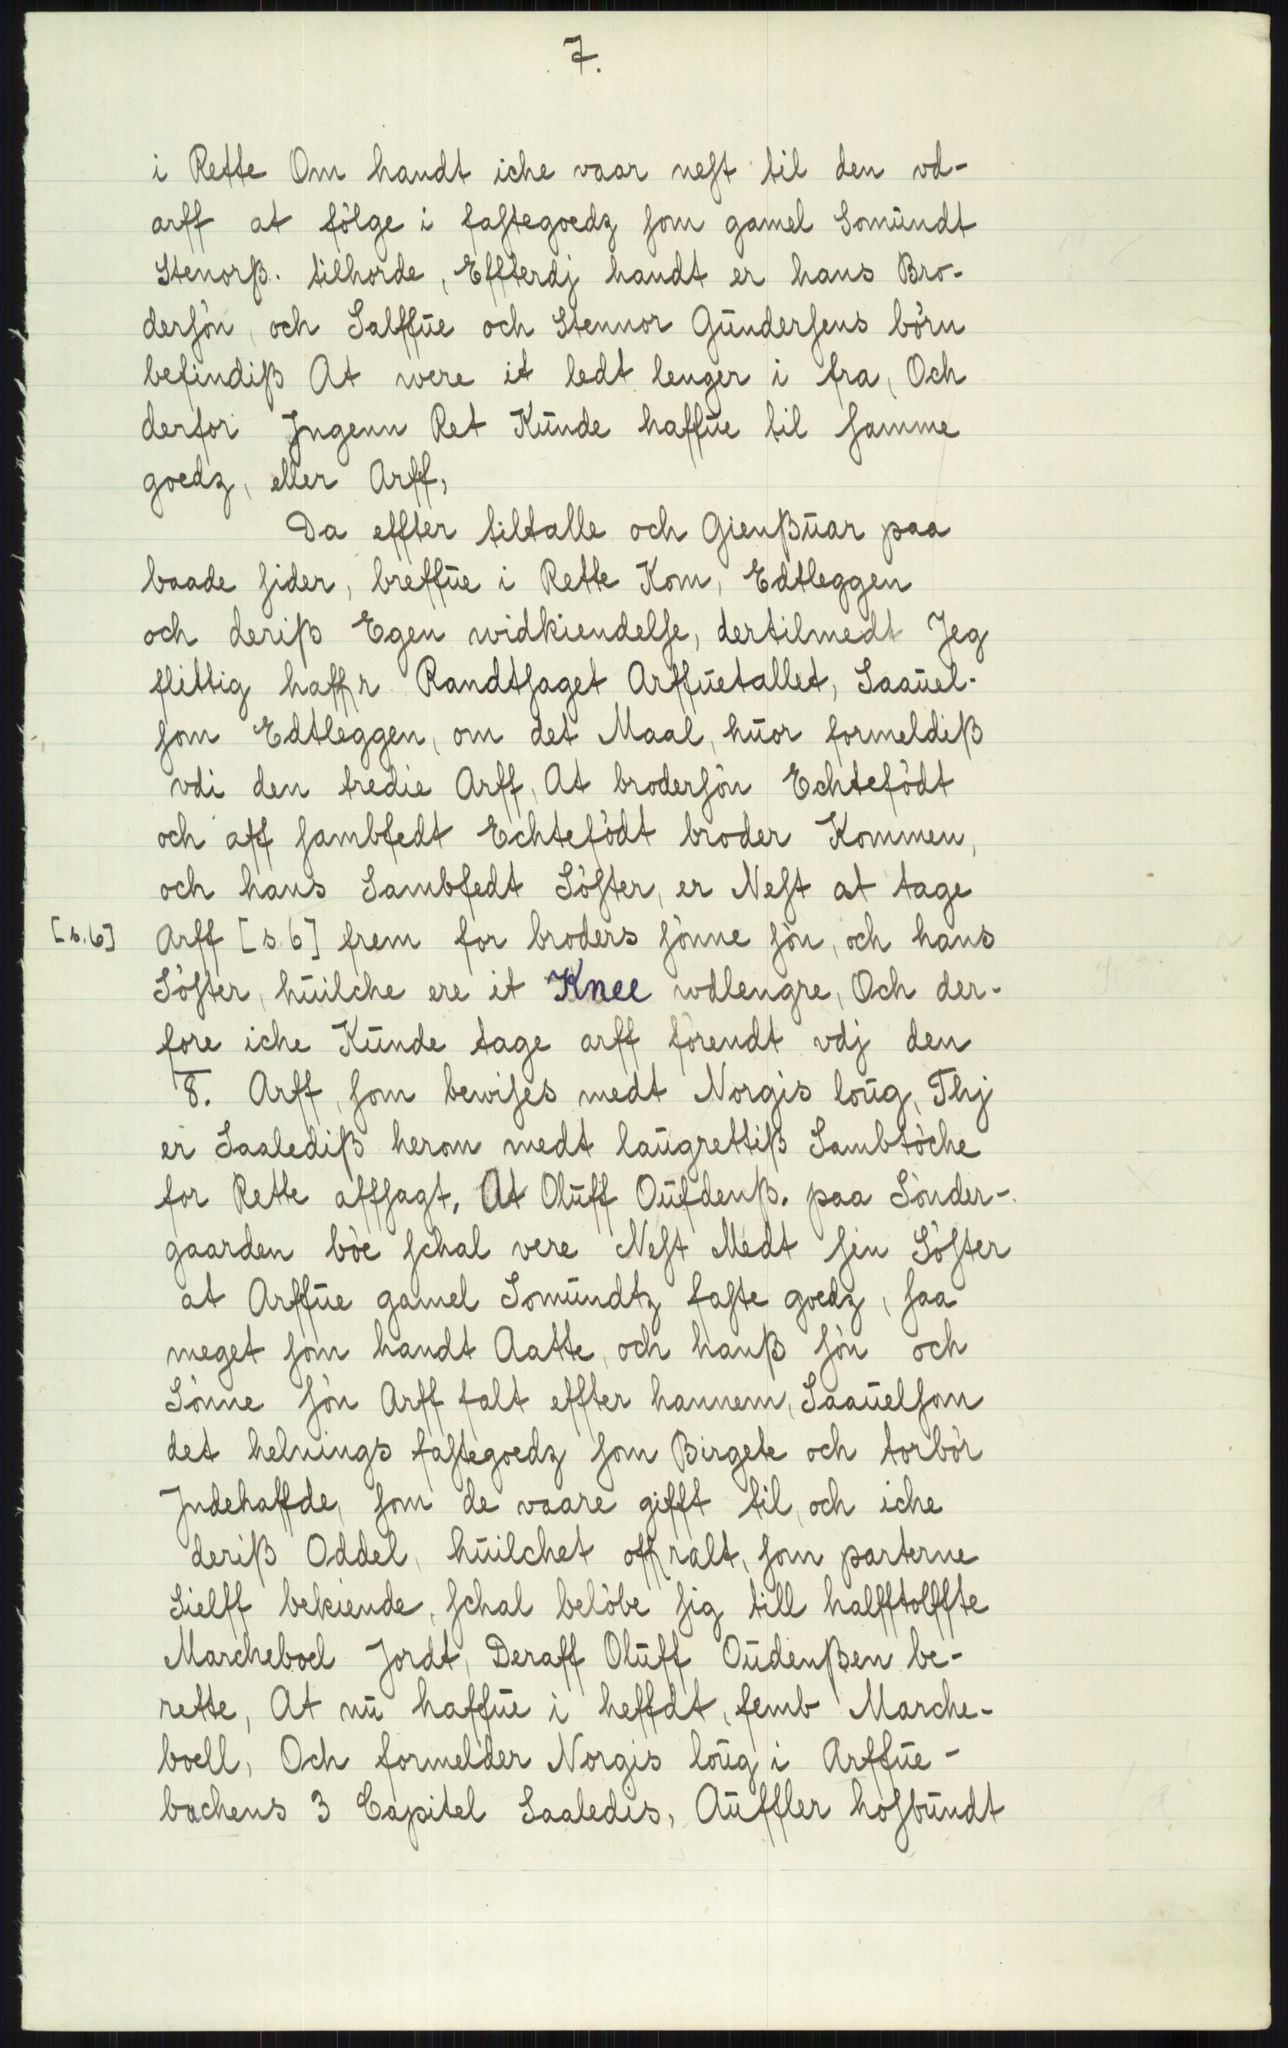 7.
i Rette Om handt iche vaar nest til den vd-
arff at følge i fastegoedz som gamel Somundt
Stenorß. tilhorde, Effterdj handt er hans Bro-
dersøn, och Salffue och Stennor Gundersens børn
befindiß At were it ledt lenger i fra, Och
derfor Jngenn Ret Kunde haffue til samme
goedz, eller Arff,
Da effter tiltalle och Gienßuar paa
baade sider, breffue i Rette Kom, Edtleggen
och deriß Egen widkiendelse, dertilmedt Jeg
flittig haffr Randtsaget Arffuetallet, Saauel-
som Edtleggen, om det Maal, huor formeldiß
vdi den tredie Arff, At brodersøn Echtefødt
och aff sambfedt Echtefødt broder Kommen,
och hans Sambfedt Søster, er Nest at tage
[s.6] Arff [s.6] frem for broders sønne søn, och hans
Søster, huilche ere it Knee wdlengre, Och der-
fore iche Kunde tage arff førendt vdj den
8. Arff, som bewises medt Norgis loug, Thj
er Saalediß herom medt laugrettiß Sambtøche
for Rette affsagt, At Oluff Oufdenß. paa Sønder-
gaarden bøe schal vere Nest Medt sin Søster
at Arffue gamel Somundtz faste goedz, saa
meget som handt Aatte, och hanß søn och
Sønne søn Arff falt effter hannem, Saauelsom
det helnings fastegoedz som Birgete och torbør
Jndehaffde, som de vaare gifft til, och iche
deriß Oddel, huilchet offralt, som parterne
Sielff bekiende, schal beløbe sig till halfftolffte
Marcheboel Jordt, Deraff Oluff Oudenßen be-
rette, At nu haffue i heffdt, femb Marche-
boell, Och formelder Norgis loug i Arffue-
bachens 3 Capitel Saaledis, Auffler hosbundt